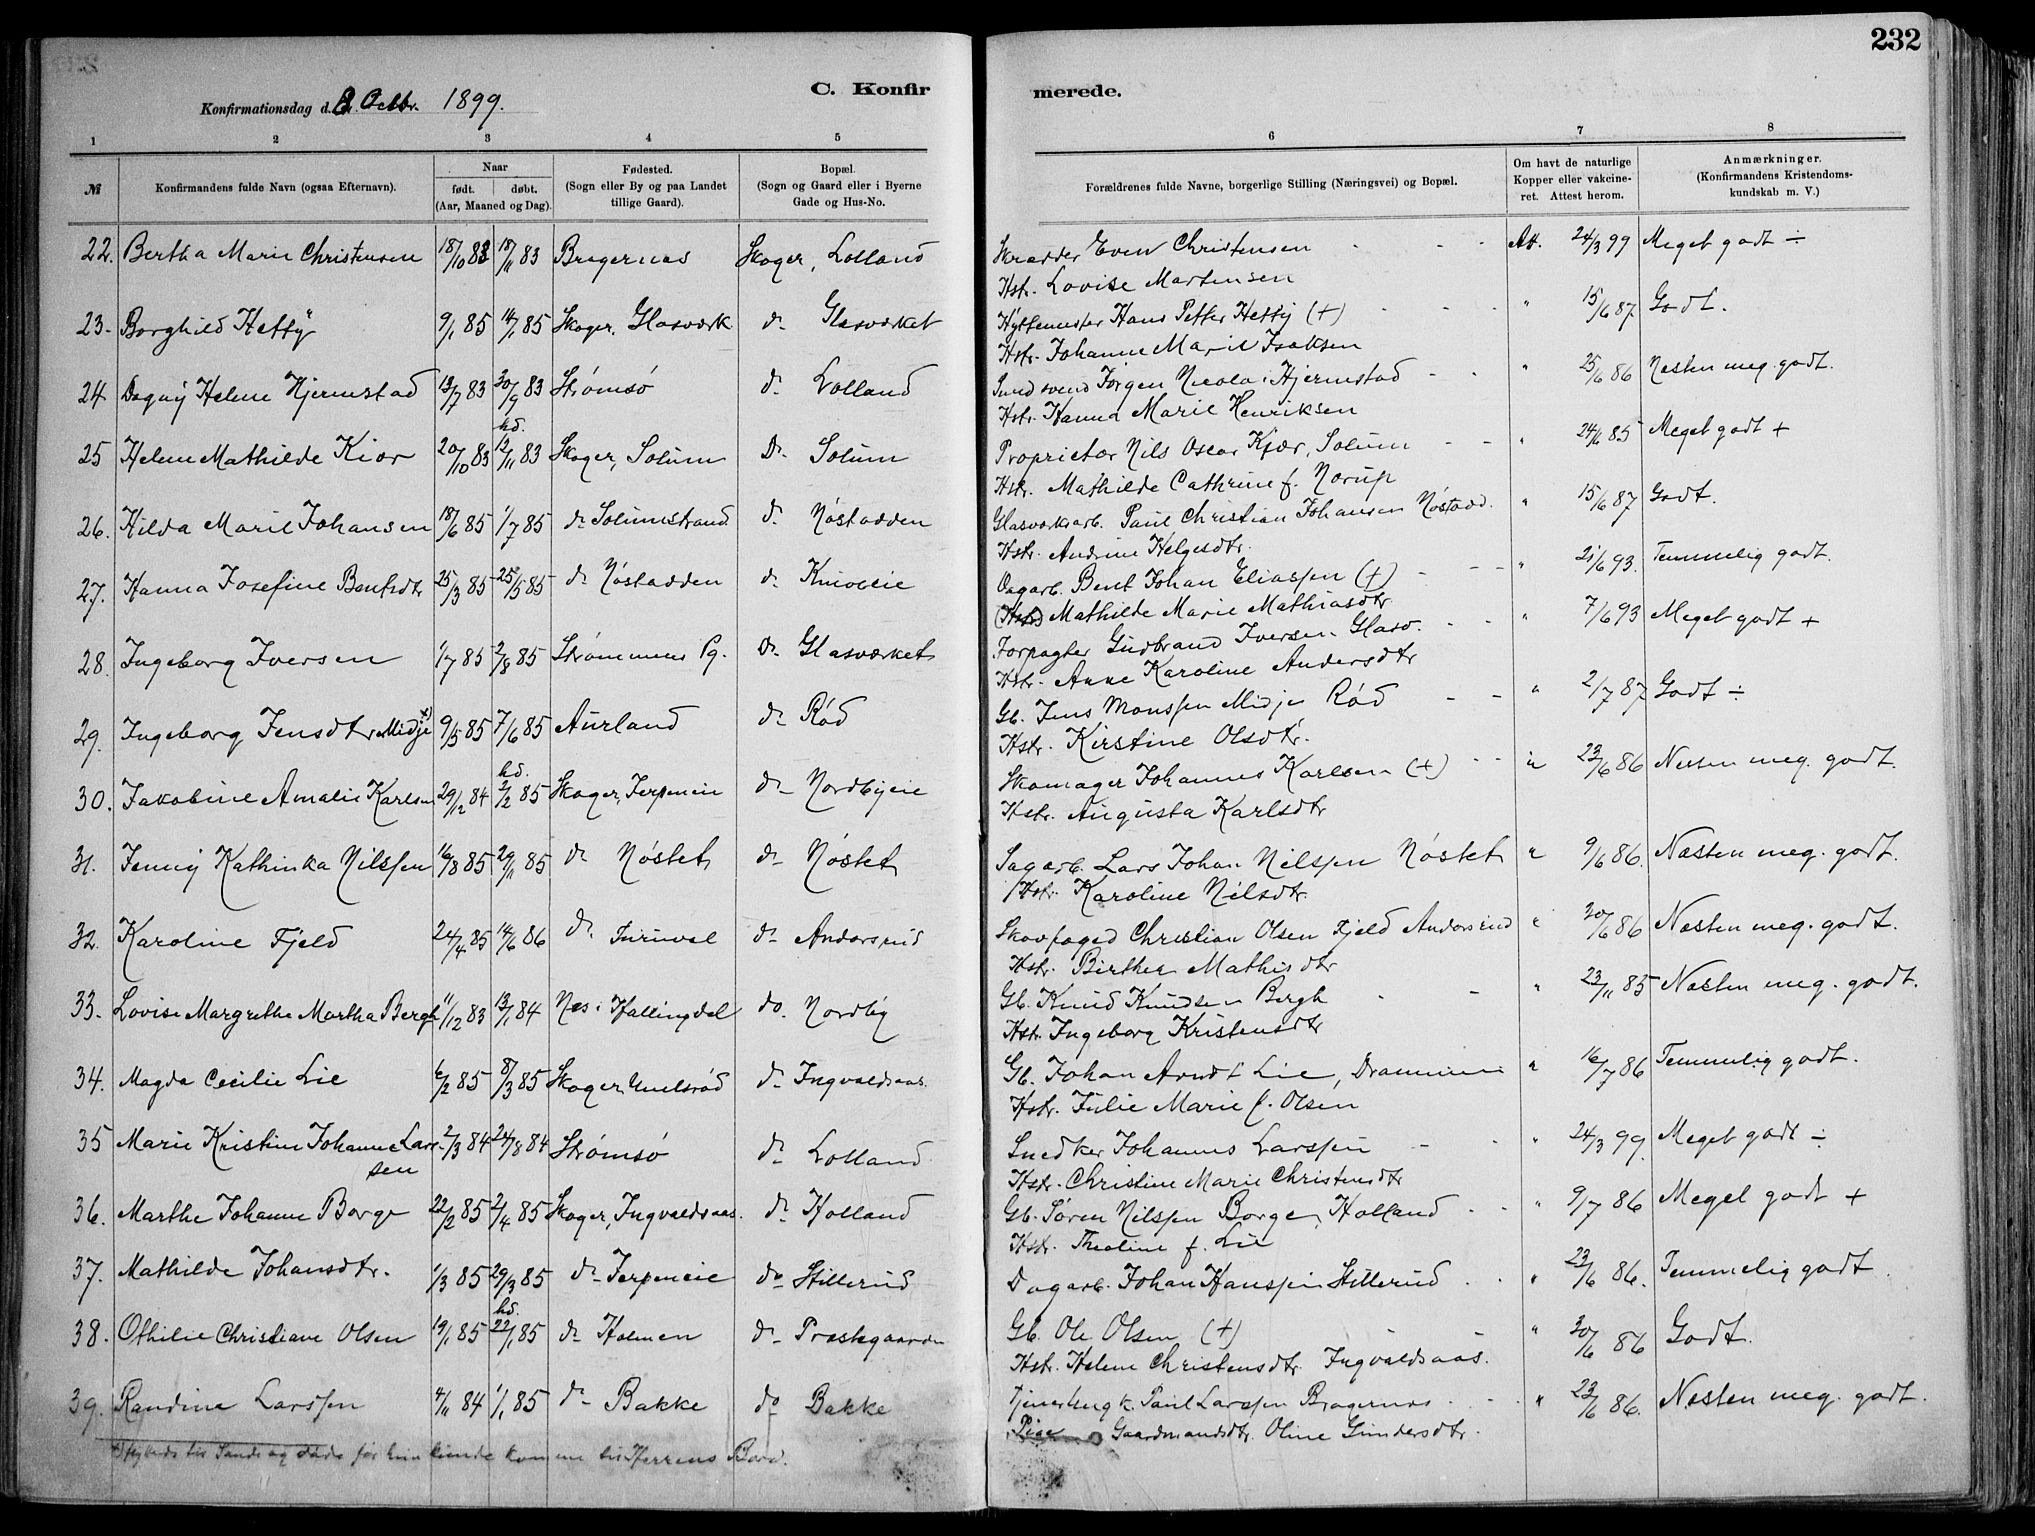 232
Konfirmationsdag d. 8. Octbr. 1899.
C. Konfirmerede.
1 2 3 4 5 6 7 8
№
Konfirmandens fulde Navn (ogsaa Efternavn).
Naar
født. døbt.
(Aar, Maaned og Dag).
Fødested.
(Sogn eller By og paa Landet
tillige Gaard).
Bopæl.
(Sogn og Gaard eller i Byerne
Gade og Hus-No.
Forældrenes fulde Navne, borgerlige Stilling (Næringsvei) og Bopæl.
Om havt de naturlige
Kopper eller vakcine-
ret. Attest herom.
Anmærkninger.
(Konfirmandens Kristendoms-
kundskab m. V.)
22. Bertha Marie Christensen 18/10 83 18/11 83 Bragernæs Skoger, Lolland Skrædder Even Christensen - - - Att. 24/3 99 Meget godt ÷
Hstr. Lovise Martensen
23. Borghild Hettÿ 9/1 85 14/7 85 Skoger, Glasværk d- Glasværket Hyttemester Hans Petter Hettÿ (+) - - - " 15/6 87 Godt.
Hstr. Johanne Marie Isaksen
24 Dagny Helene Hjermstad 13/7 83 30/9 83 Strømsø d- Lolland Jørgen Nicolai Hjermstad - - " 25/6 86 Næsten meg. godt.
Hstr. Hanna Marie Henriksen
25 Helene Mathilde Kiær 20/10 83 hd. 12/11 83 Skoger, Solum D- Solum Proprietær Nils Oscar Kjær, Solum - - " 24/6 85 Meget godt +
Hstr. Mathilde Cathrine f. Nørup
26. Hilda Marie Johansen 18/6 85 1/7 85 d- Solumstrand d- Nøstadden Glasværksarb. Paul Christian Johansen Nøstadd. " 15/6 87 Godt.
Hstr. Andrine Helgesdtr.
27. Hanna Josefine Bentsdtr 25/3 85 25/5 85 d- Nøstadden d- Knoweie Dagarb. Bent Johan Eliassen (+) - - - " 21/6 93. Temmelig godt.
(Hstr) Mathilde Marie Mathiasdtr
28. Ingeborg Iversen 1/7 85 2/8 85 Strømmens Pg. D- Glasværket Forpagter Gudbrand Iversen Glasv. - - " 7/6 93 Meget godt +
Hstr. Anne Karoline Andersdtr
29. Ingeborg Jensdtr Midje +) 9/5 85 7/6 85 Aurland d- Rød Gb. Jens Monssen Midje Rød - - " 2/7 87 Godt ÷
Hstr. Kirstine Olsdtr.
30. Jakobine Amalie Karlsen 29/12 84 hd. 2/2 85 Skoger, Jerpeneie d- Nordbyeie Skomager Johannes Karlsen (+) - - " 23/6 86 Næsten meg. godt.
Hstr. Augusta Karlsdtr
31. Jenny Kathinka Nilssen 16/8 85 29/11 85 d- Nøstet d- Nøstet Sagarb. Lars Johan Nilssen Nøstet " 9/6 86. Næsten meg. godt.
Hstr. Karoline Nilsdtr.
32. Karoline Fjeld 24/4 85 14/6 86 d- d- Andorsrud Skovfoged Christian Olsen Fjeld Andorsrud " 30/6 86 Næsten meg. godt.
Hstr. Birthe Mathisdtr
33. Lovise Margrethe Martha Bergh 11/12 83 13/1 84 Nes i Hallingdal do. Nordby Gb. Knud Knudsen Bergh - - " 23/11 85 Næsten meg. godt.
Hstr. Ingeborg Kristensdtr
34. Magda Cecilie Lie 6/2 85 8/3 85 Skoger, Unelsrød d- Ingvaldsaas. Gb. Johan Arndt Lie, Drammen " 16/7 86 Temmelig godt.
Hstr. Julie Marie f. Olsen
35 Marie Kristine Johanne Lar- 2/3 84 24/8 84 Strømsø d- Lolland Snedker Johannes Larssen - - " 24/3 99. Meget godt ÷
sen Hstr. Christine Marie Christensdtr
36. Marthe Johanne Borge 22/2 85 2/4 85 Skoger, Ingvaldsaas. d- Holland Gb. Søren Nilssen Borge, Holland - - " 9/7 86 Meget godt +
Hstr. Theoline f. Lie
37. Mathilde Johansdtr. 1/3 85 29/3 85 d- Jerpeneie do Stillerud Dagarb. Johan Hanssen Stillerud - - " 23/6 86. Temmelig godt
38. Othilie Christiane Olsen 19/1 85 hd. 22/1 85 d- Holmen d- Præstegaarden Gb. Ole Olsen (+) - - " 30/6 86 Godt.
Hstr. Helene Christensdtr. Ingvaldsaas.
39. Randine Larssen 4/11 84 1/1 85 d- Bakke do Bakke Paul Larssen Bragernæs - - " 23/6 86. Næsten meg. godt.
Pige Gaardmandsdtr. Oline Gundersdtr.
+) til Sands og døde før hun kunde komme til Herrens Bord.